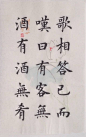 歌相答已而
嘆曰有客無
酒有酒無肴